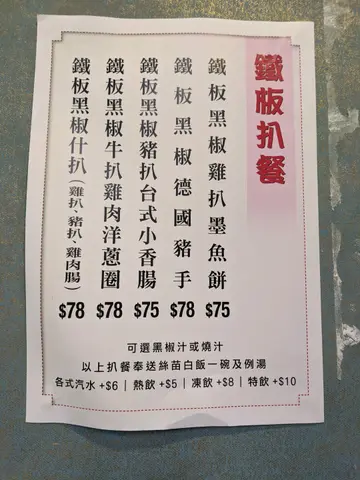 鐵板扒餐
鐵板黑椒雞扒墨魚餅
$75
鐵板黑椒德國豬手
$78
鐵板黑椒豬扒台式小香腸
$75
鐵板黑椒牛扒雞肉洋蔥圈
$78
鐵板黑椒什扒(雞扒、豬扒、雞肉腸)
$78
可選黑椒汁或燒汁
以上扒餐奉送絲苗白飯一碗及例湯
各式汽水 +$6 | 熱飲 +$5 | 凍飲 +$8 | 特飲 +$10